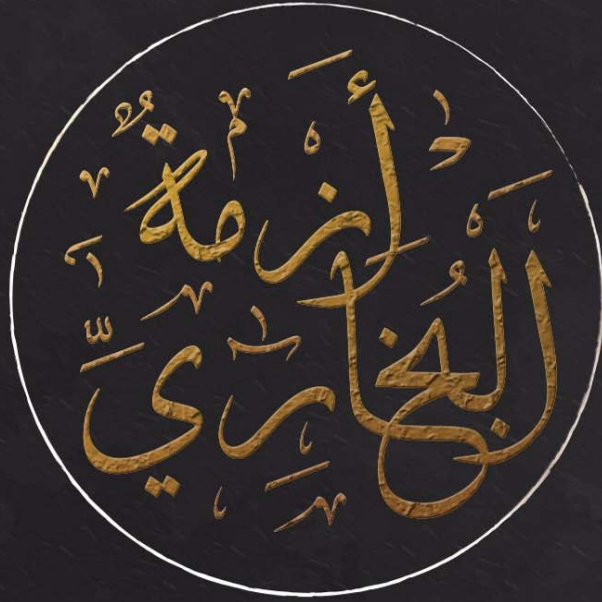 أزمةُ
البُخاريِّ